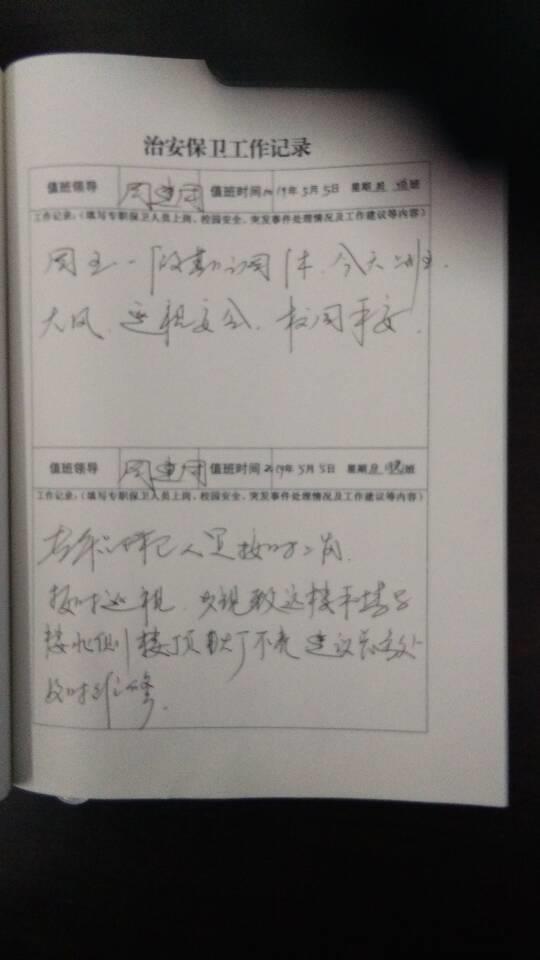 治安保卫工作记录
值班领导 周建国 值班时间 2019年5月5日 星期日 班
工作记录:(填写专职保卫人员上岗、校园安全、突发事件处理情况及工作建议等内容)
周五一 调休,今天上班.
大风,巡视安全.校园平安.
值班领导 周建国 值班时间 2019年5月5日 星期日 晚班
工作记录:(填写专职保卫人员上岗、校园安全、突发事件处理情况及工作建议等内容)
人员按时上岗.
按时巡视,发现
楼北侧楼顶 灯不亮 建议总务处
及时维修.